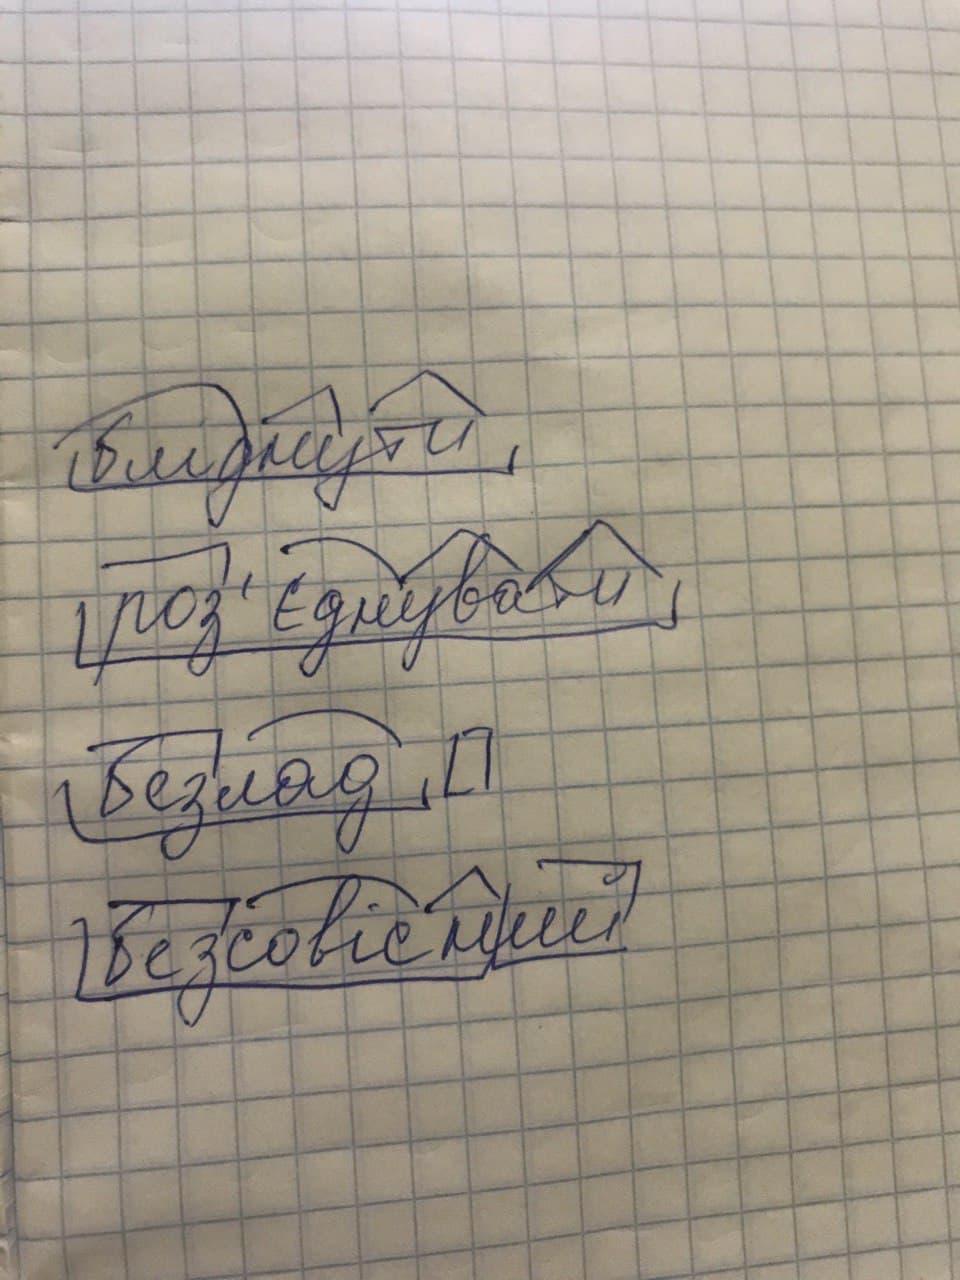 бліднути
роз'єднувати
безлад
безсовісний